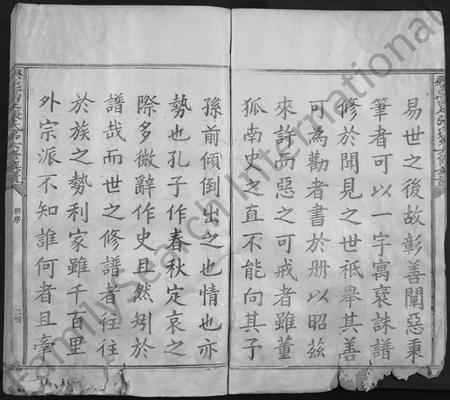 易世之後故彰善闡惡秉
筆者可以一字寓褒誅譜
修於聞見之世祗舉其善
可為勸者書於册以昭茲
來許而惡之可戒者雖董
狐南史之直不能向其子
孫前傾倒出之也情也亦
勢也孔子作春秋定哀之
際多微辭作史且然矧於
譜哉而世之修譜者往往
於族之勢利家雖千百里
外宗派不知誰何者且牽
新序
Family Search International